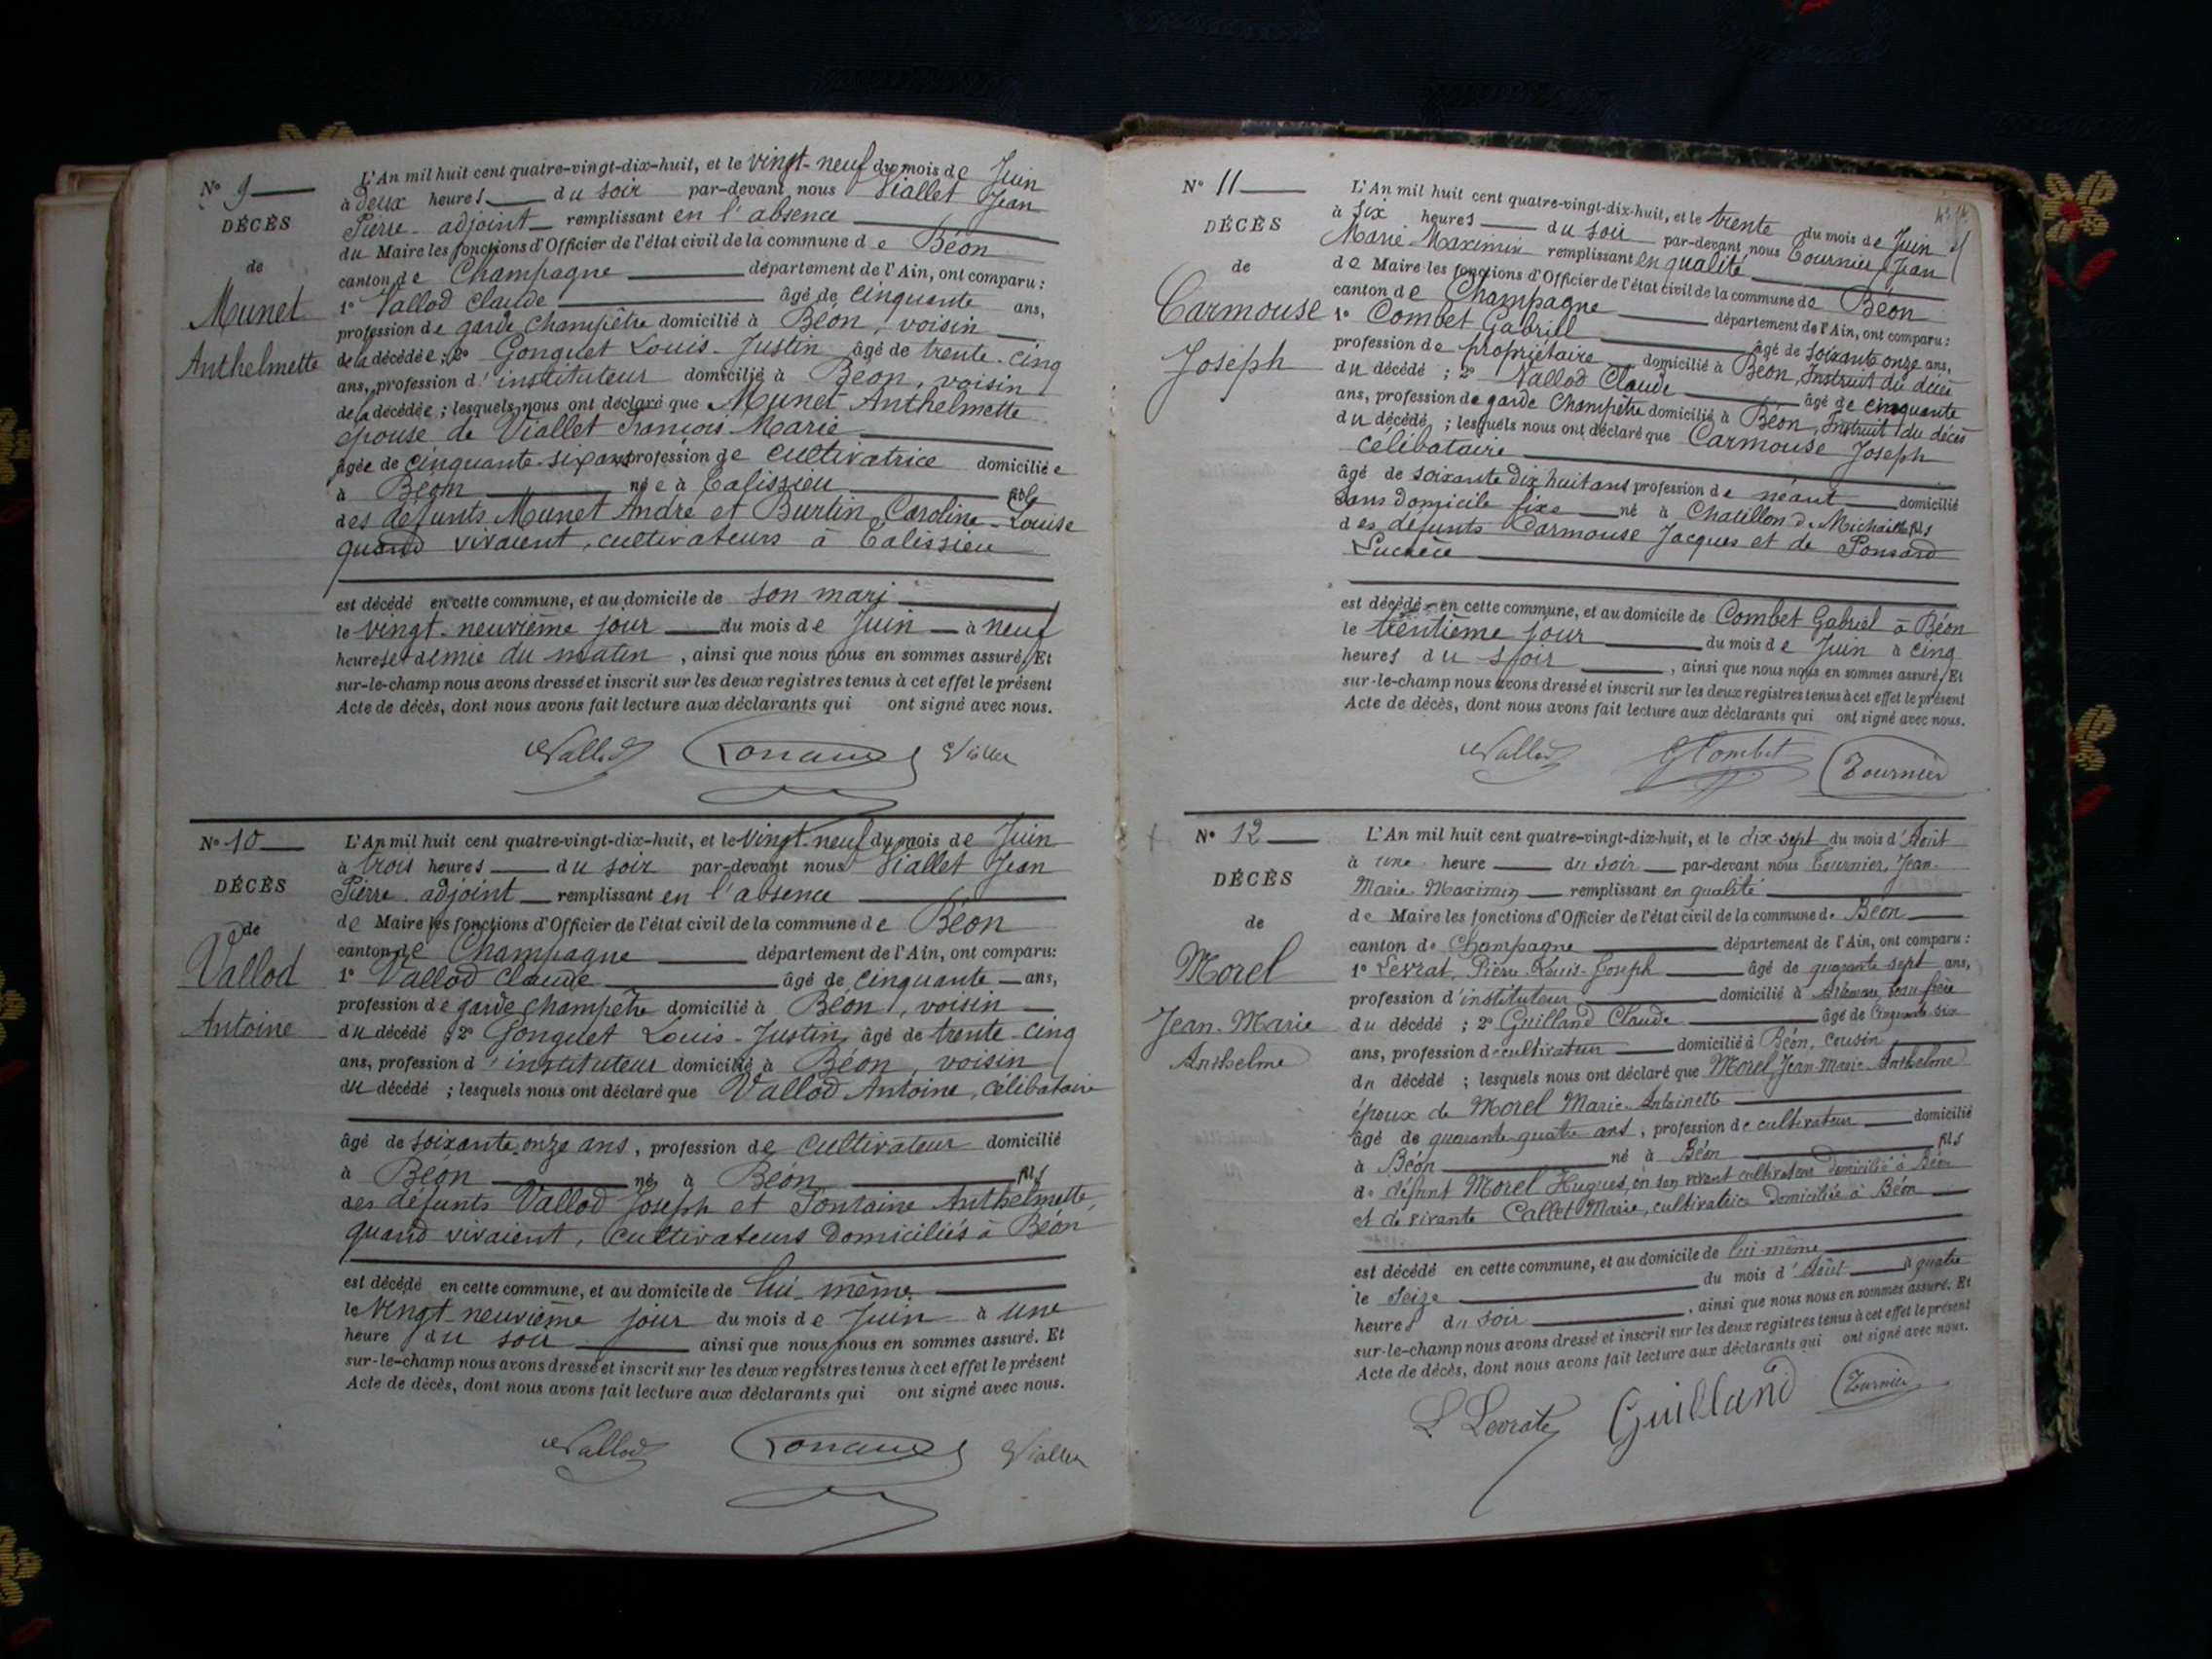 N° 9
DÉCÈS
de
Munet
Anthelmette
L'An mil huit cent quatre-vingt-dix-huit, et le vingt-neuf du mois de Juin
à deux heures du soir par-devant nous Viallet Jean
Pierre adjoint remplissant en l'absence
du Maire les fonctions d'Officier de l'état civil de la commune de Béon
canton de Champagne département de l'Ain, ont comparu :
1° Vallod Claude âgé de cinquante ans,
profession de garde champêtre domicilié à Béon, voisin
de la décédée ; 2° Gonguet Louis-Justin âgé de trente-cinq
ans, profession d'instituteur domicilié à Béon, voisin
de la décédée ; lesquels nous ont déclaré que Munet Anthelmette
épouse de Viallet François Marie
âgée de cinquante-six ans profession de cultivatrice domiciliée
à Béon née à Talissieu fille
des défunts Munet André et Burlin Caroline-Louise
quand vivaient, cultivateurs à Talissieu
est décédé en cette commune, et au domicile de son mari
le vingt-neuvième jour du mois de Juin à neuf
heures et demie du matin, ainsi que nous nous en sommes assuré. Et
sur-le-champ nous avons dressé et inscrit sur les deux registres tenus à cet effet le présent
Acte de décès, dont nous avons fait lecture aux déclarants qui ont signé avec nous.
Vallod Viallet
N° 10
DÉCÈS
de
Vallod
Antoine
L'An mil huit cent quatre-vingt-dix-huit, et le vingt-neuf du mois de Juin
à trois heures du soir par-devant nous Viallet Jean
Pierre adjoint remplissant en l'absence
de Maire les fonctions d'Officier de l'état civil de la commune de Béon
canton de Champagne département de l'Ain, ont comparu:
1° Vallod Claude âgé de cinquante ans,
profession de garde champêtre domicilié à Béon, voisin
du décédé ; 2° Gonguet Louis-Justin, âgé de trente-cinq
ans, profession d'instituteur domicilié à Béon, voisin
du décédé ; lesquels nous ont déclaré que Vallod Antoine, célibataire
âgé de soixante onze ans, profession de cultivateur domicilié
à Béon né à Béon fils
des défunts Vallod Joseph et Fontaine Anthelmette,
quand vivaient, cultivateurs domiciliés à Béon
est décédé en cette commune, et au domicile de lui-même
le vingt-neuvième jour du mois de Juin à une
heure du soir ainsi que nous nous en sommes assuré. Et
sur-le-champ nous avons dressé et inscrit sur les deux registres tenus à cet effet le présent
Acte de décès, dont nous avons fait lecture aux déclarants qui ont signé avec nous.
Vallod Viallet
N° 11
DÉCÈS
de
Carmouse
Joseph
L'An mil huit cent quatre-vingt-dix-huit, et le trente du mois de Juin
à six heures du soir par-devant nous Tournier, Jean
Marie Maximin remplissant en qualité
de Maire les fonctions d'Officier de l'état civil de la commune de Béon
canton de Champagne département de l'Ain, ont comparu :
1° Combet Gabriel âgé de soixante onze ans,
profession de propriétaire domicilié à Béon, Instruit du décès
du décédé ; 2° Vallod Claude âgé de cinquante
ans, profession de garde champêtre domicilié à Béon, Instruit du décès
du décédé ; lesquels nous ont déclaré que Carmouse Joseph
célibataire
âgé de soixante dix huit ans profession de néant domicilié
sans domicile fixe né à Chatillon de Michaille fils
des défunts Carmouse Jacques et de Ponsard
Lucrèce
est décédé en cette commune, et au domicile de Combet Gabriel à Béon
le trentième jour du mois de Juin à cinq
heures du soir, ainsi que nous nous en sommes assuré. Et
sur-le-champ nous avons dressé et inscrit sur les deux registres tenus à cet effet le présent
Acte de décès, dont nous avons fait lecture aux déclarants qui ont signé avec nous.
Vallod G Combet Tournier
N° 12
DÉCÈS
de
Morel
Jean-Marie
Anthelme
L'An mil huit cent quatre-vingt-dix-huit, et le dix-sept du mois d'Août
à une heure du soir par-devant nous Tournier, Jean-
Marie Maximin remplissant en qualité
de Maire les fonctions d'Officier de l'état civil de la commune de Béon
canton de Champagne département de l'Ain, ont comparu :
1° Levrat, Pierre-Louis-Joseph âgé de quarante-sept ans,
profession d'instituteur domicilié à beau-frère
du décédé ; 2° Guilland Claude âgé de cinquante-six
ans, profession de cultivateur domicilié à Béon, cousin
du décédé ; lesquels nous ont déclaré que Morel Jean-Marie Anthelme
époux de Morel Marie-Antoinette
âgé de quarante-quatre ans, profession de cultivateur domicilié
à Béon né à Béon fils
de défunt Morel Hugues, en son vivant cultivateur domicilié à Béon
et de vivante Callet Marie, cultivatrice domiciliée à Béon
est décédé en cette commune, et au domicile de lui-même
le seize du mois d'Août à quatre
heures du soir, ainsi que nous nous en sommes assuré. Et
sur-le-champ nous avons dressé et inscrit sur les deux registres tenus à cet effet le présent
Acte de décès, dont nous avons fait lecture aux déclarants qui ont signé avec nous.
L Levrat Guilland Tournier